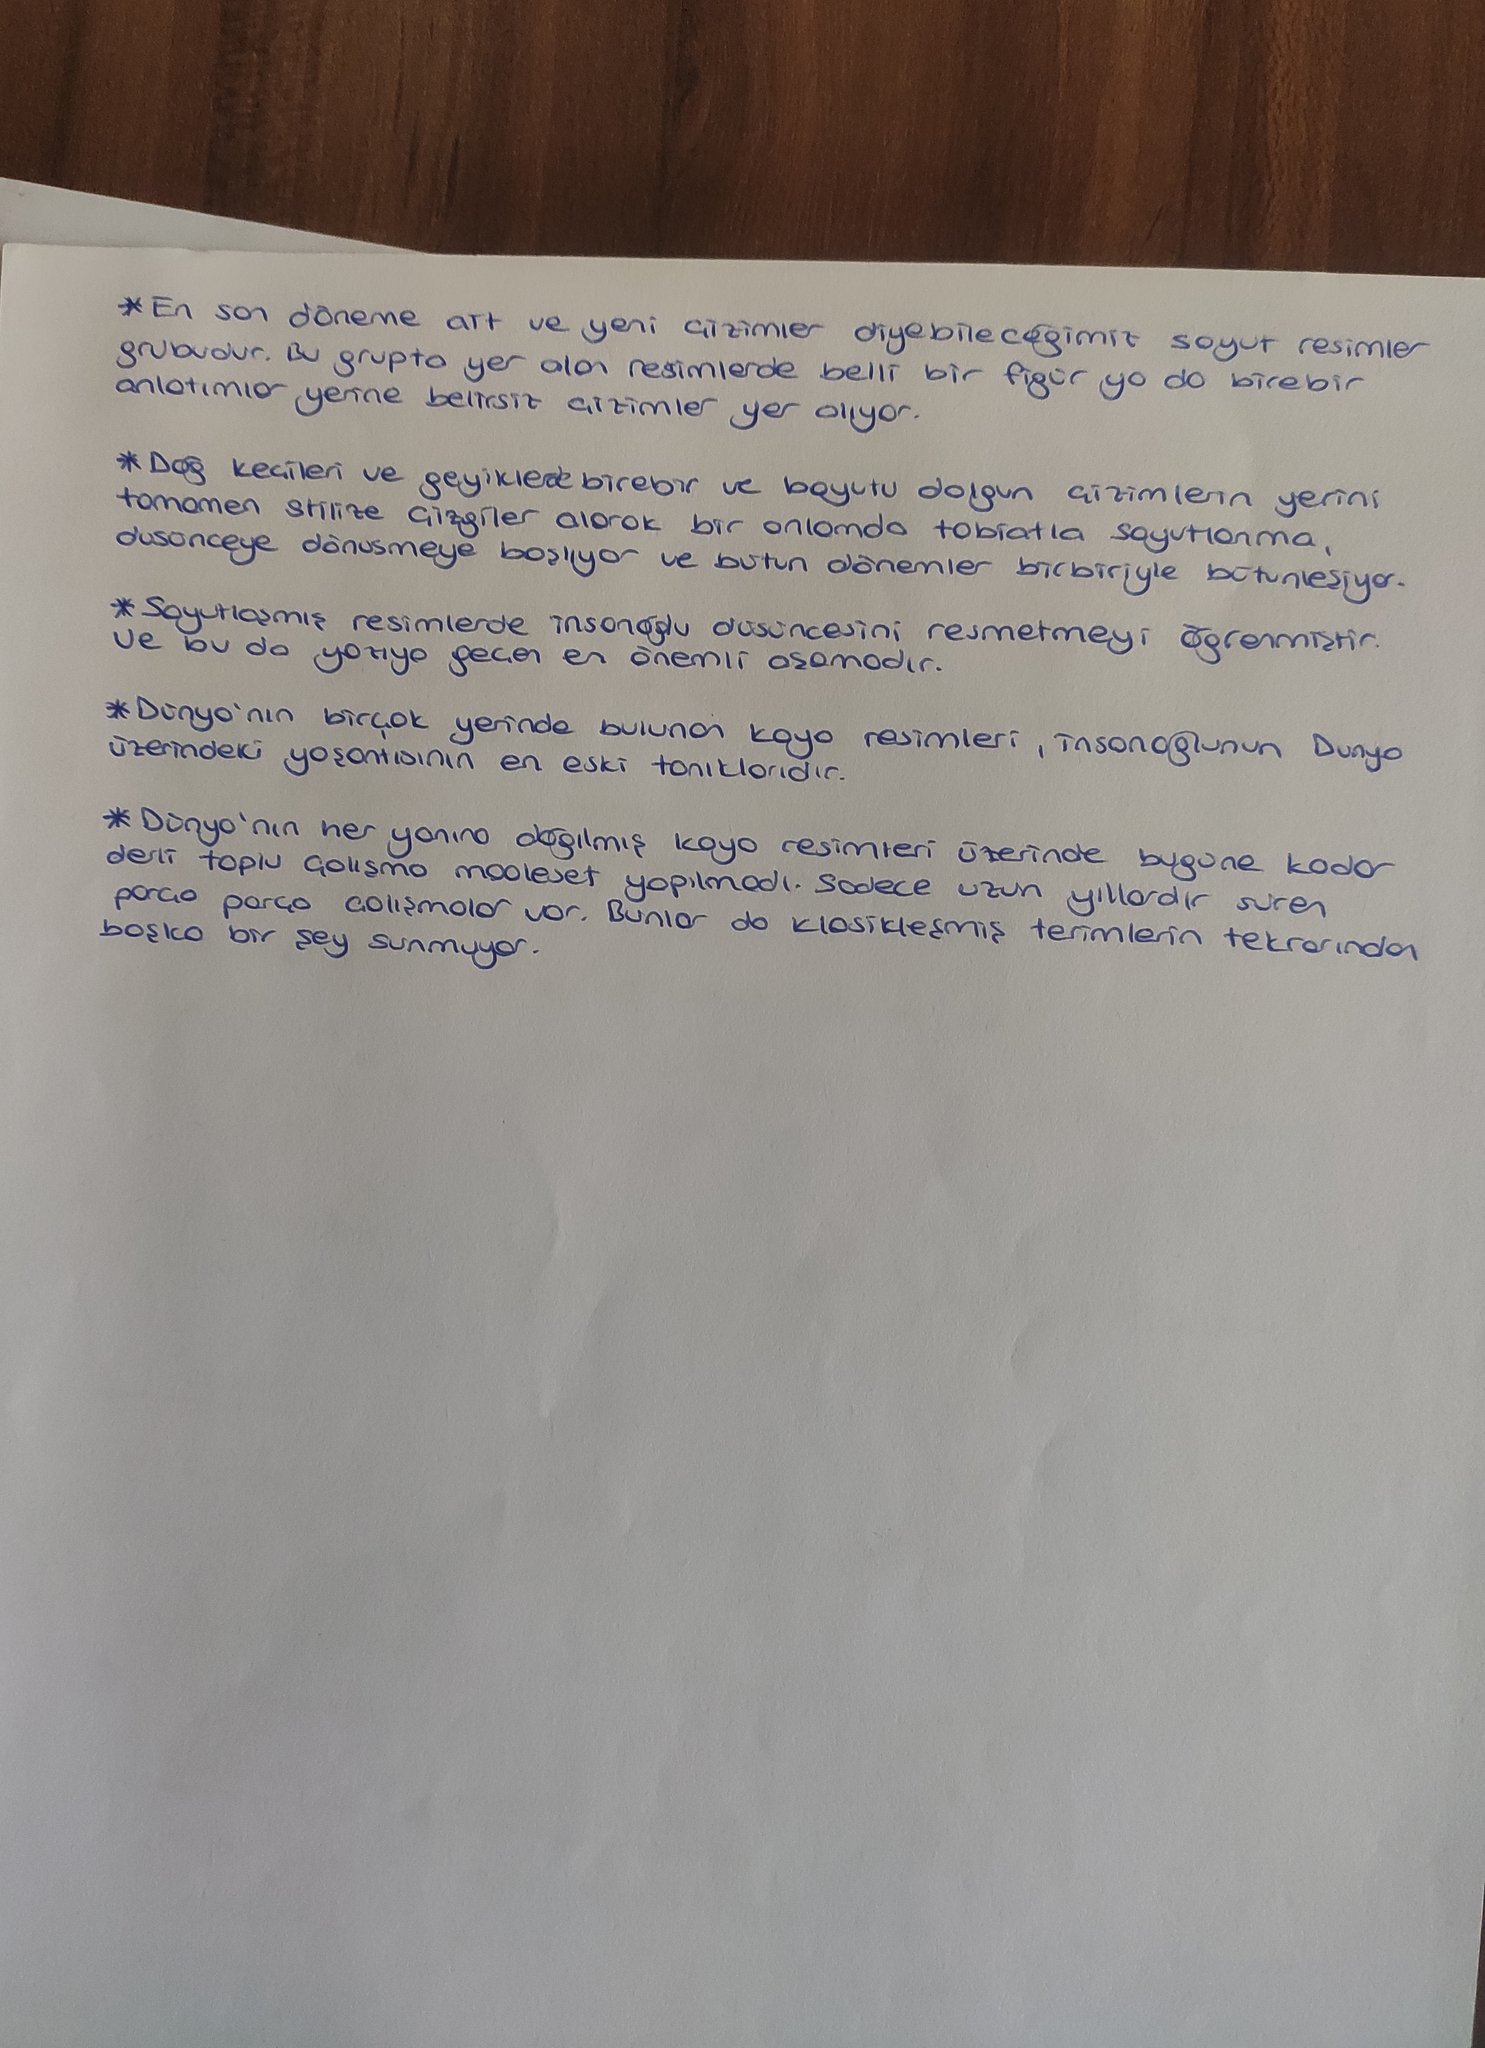 *En son döneme ait ve yeni çizimler diyebileceğimiz soyut resimler
grubudur. Bu grupta yer alan resimlerde belli bir figür ya da birebir
anlatımlar yerine belirsiz çizimler yer alıyor.
*Dağ keçileri ve geyiklerde birebir ve boyutu dolgun çizimlerin yerini
tamamen stilize çizgiler alarak bir anlamda tabiatla soyutlanma,
düşünceye dönüşmeye başlıyor ve bütün dönemler birbiriyle bütünleşiyor.
*Soyutlaşmış resimlerde insanoğlu düşüncesini resmetmeyi öğrenmiştir.
Ve bu da yazıya geçen en önemli aşamadır.
*Dünya'nın birçok yerinde bulunan kaya resimleri, insanoğlunun Dünya
üzerindeki yaşantısının en eski tanıklarıdır.
*Dünya'nın her yanına dağılmış kaya resimleri üzerinde bugüne kadar
derli toplu çalışma maalesef yapılmadı. Sadece uzun yıllardır süren
parça parça çalışmalar var. Bunlar da klasikleşmiş terimlerin tekrarından
başka bir şey sunmuyor.